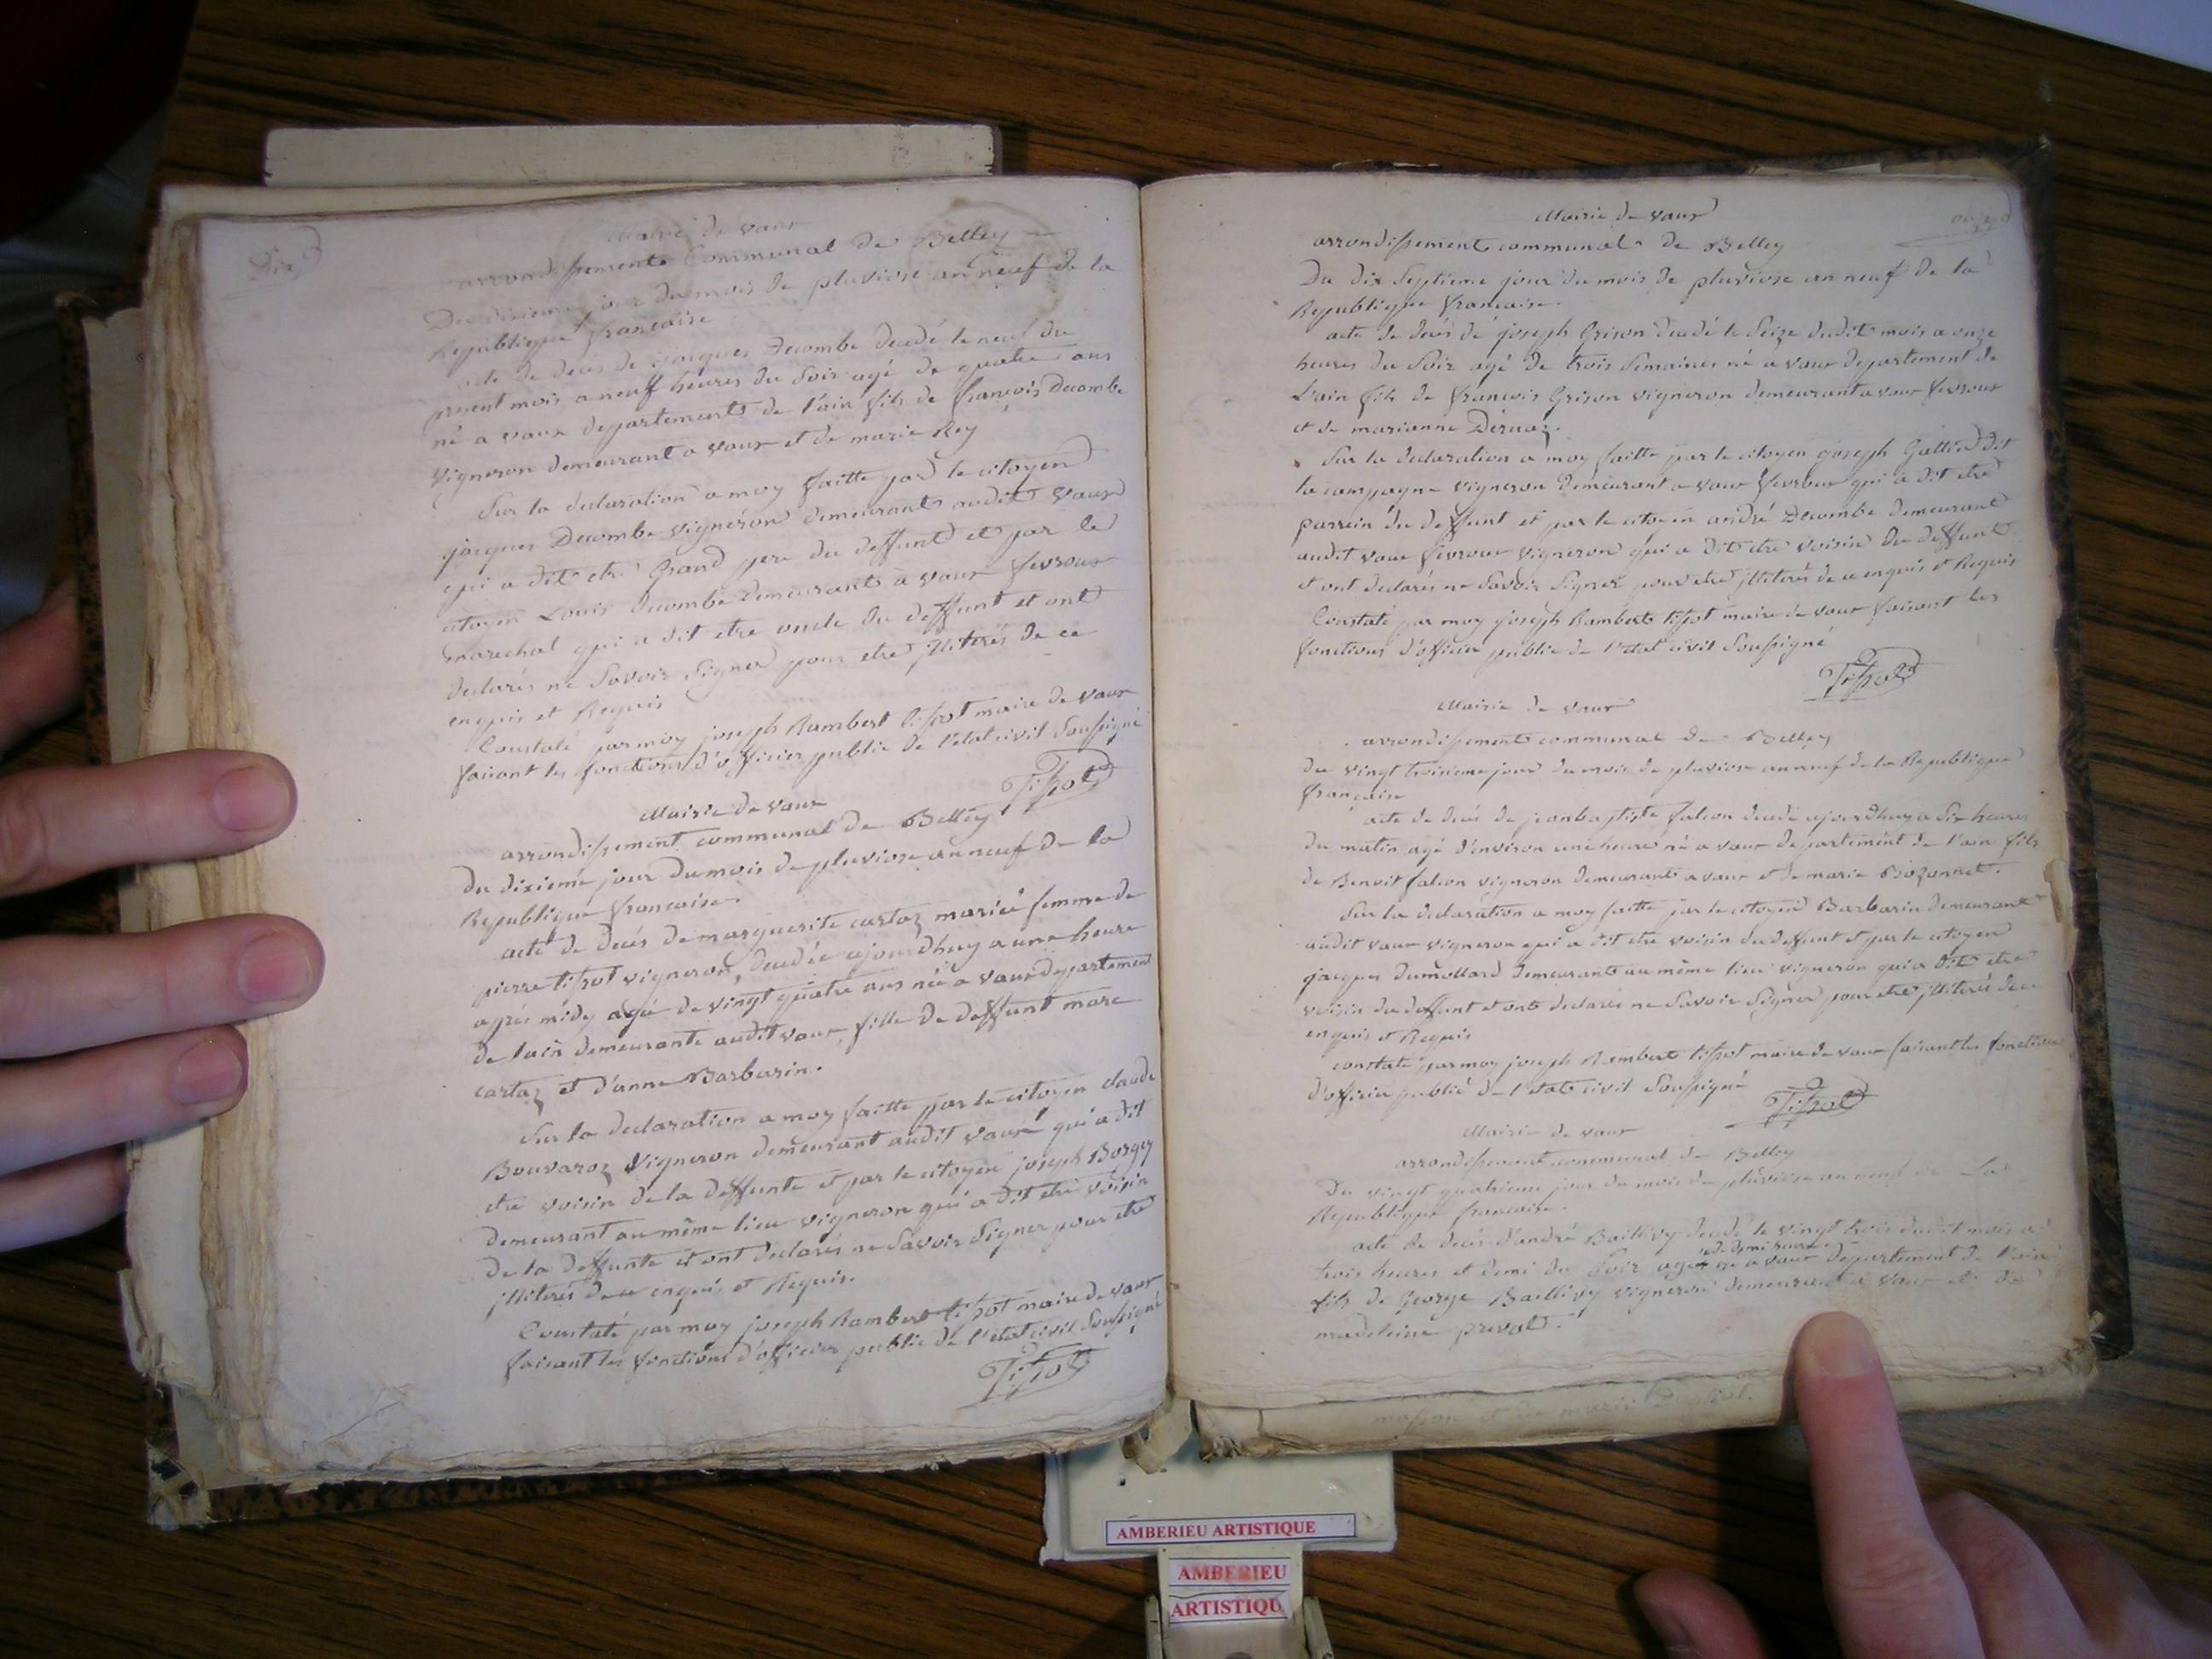 Dix
Mairie de vaux
arrondissement Communal de Belley
Du dixieme jour du mois de pluviose an neuf de la
Republique francaise
acte de deces de jacques Decombe decedé le neuf du
present mois a neuf heures du soir agé de quatre ans
né a vaux departement de l'ain fils de francois Decombe
vigneron demeurant a vaux et de marie Rey
Sur la declaration a moy faitte par le citoyen
jacques Decombe vigneron demeurant audit vaux
qui a dit etre Grand pere du deffunt et par le
citoyen Louis Decombe demeurant a vaux fevroux
marechal qui a dit etre oncle du deffunt et ont
declarés ne Savoir Signer pour etre jlliterés de ce
enquis et Requis
Constaté par moy joseph Rambert tissot maire de vaux
faisant les fonctions d'officier public de l'etat civil Soussigné
Tissot
Mairie de vaux
arrondissement communal de Belley
du dixieme jour du mois de pluviose an neuf de la
Republique francaise.
acte de deces de marguerite cartaz mariée femme de
pierre tissot vigneron, decedée ajourdhuy a une heure
après midy agée de vingt quatre ans née a vaux departement
de l'ain demeurante audit vaux, fille de deffunt marc
cartaz et d'anne Barbarin.
Sur la declaration a moy faitte par le citoyen claude
Bouvaroz vigneron demeurant audit vaux qui a dit
etre voisin de la deffunte et par le citoyen joseph Borgey
demeurant au même lieu vigneron qui a dit etre voisin
de la deffunte et ont declarés ne Savoir Signer pour etre
jlliterés de ce enquis et Requis.
Constaté par moy joseph Rambert tissot maire de vaux
faisant les fonctions d'officier public de l'etat civil Soussigné
Tissot
onze
Mairie de vaux
arrondissement communal de Belley
Du dix Septieme jour du mois de pluviose an neuf de la
Republique francaise.
acte de deces de joseph Grison decedé le Seize dudit mois a onze
heures du Soir agé de trois Semaines né a vaux departement de
L'ain fils de francois Grison vigneron demeurant a vaux fevroux
et de marianne Dernaz.
Sur la declaration a moy faitte par le citoyen joseph Gallied dit
la campagne vigneron demeurant a vaux fevroux qui a dit etre
parrein du deffunt et par le citoyen andré Decombe demeurant
audit vaux fevroux vigneron qui a dit etre voisin du deffunt
et ont declarés ne Savoir Signer pour etre jlliterés de ce enquis et Requis
Constaté par moy joseph Rambert tissot maire de vaux faisant les
fonctions d'officier public de l'etat civil Soussigné
Tissot
Mairie de vaux
arrondissement communal de Belley
du vingt troisieme jour du mois de pluviose an neuf de la Republique
francaise
acte de deces de jean baptiste falcon decedé ajourdhuy a Six heures
du matin agé d'environ une heure né a vaux departement de l'ain fils
de Benoit falcon vigneron demeurant a vaux et de marie Bozonnet.
Sur la declaration a moy faitte par le citoyen Barbarin demeurant
audit vaux vigneron qui a dit etre voisin du deffunt et par le citoyen
jacques dumollard demeurant au même lieu vigneron qui a dit etre
voisin du deffunt et ont declarés ne Savoir Signer pour etre jlliterés de ce
enquis et Requis
constaté par moy joseph Rambert tissot maire de vaux faisant les fonctions
d'officier public de l'etat civil Soussigné
Tissot
Mairie de vaux
arrondissement communal de Belley
Du vingt quatrieme jour du mois de pluviose an neuf de La
Republique francaise.
acte de deces d'andré Baillivy decedé le vingt trois dudit mois a
trois heures et demi du Soir agé de demi heure né a vaux departement de l'ain
fils de George Baillivy vigneron demeurant a vaux et de
madeleine prevalt.
masson et de marie
AMBERIEU ARTISTIQUE
AMBERIEU
ARTISTIQU